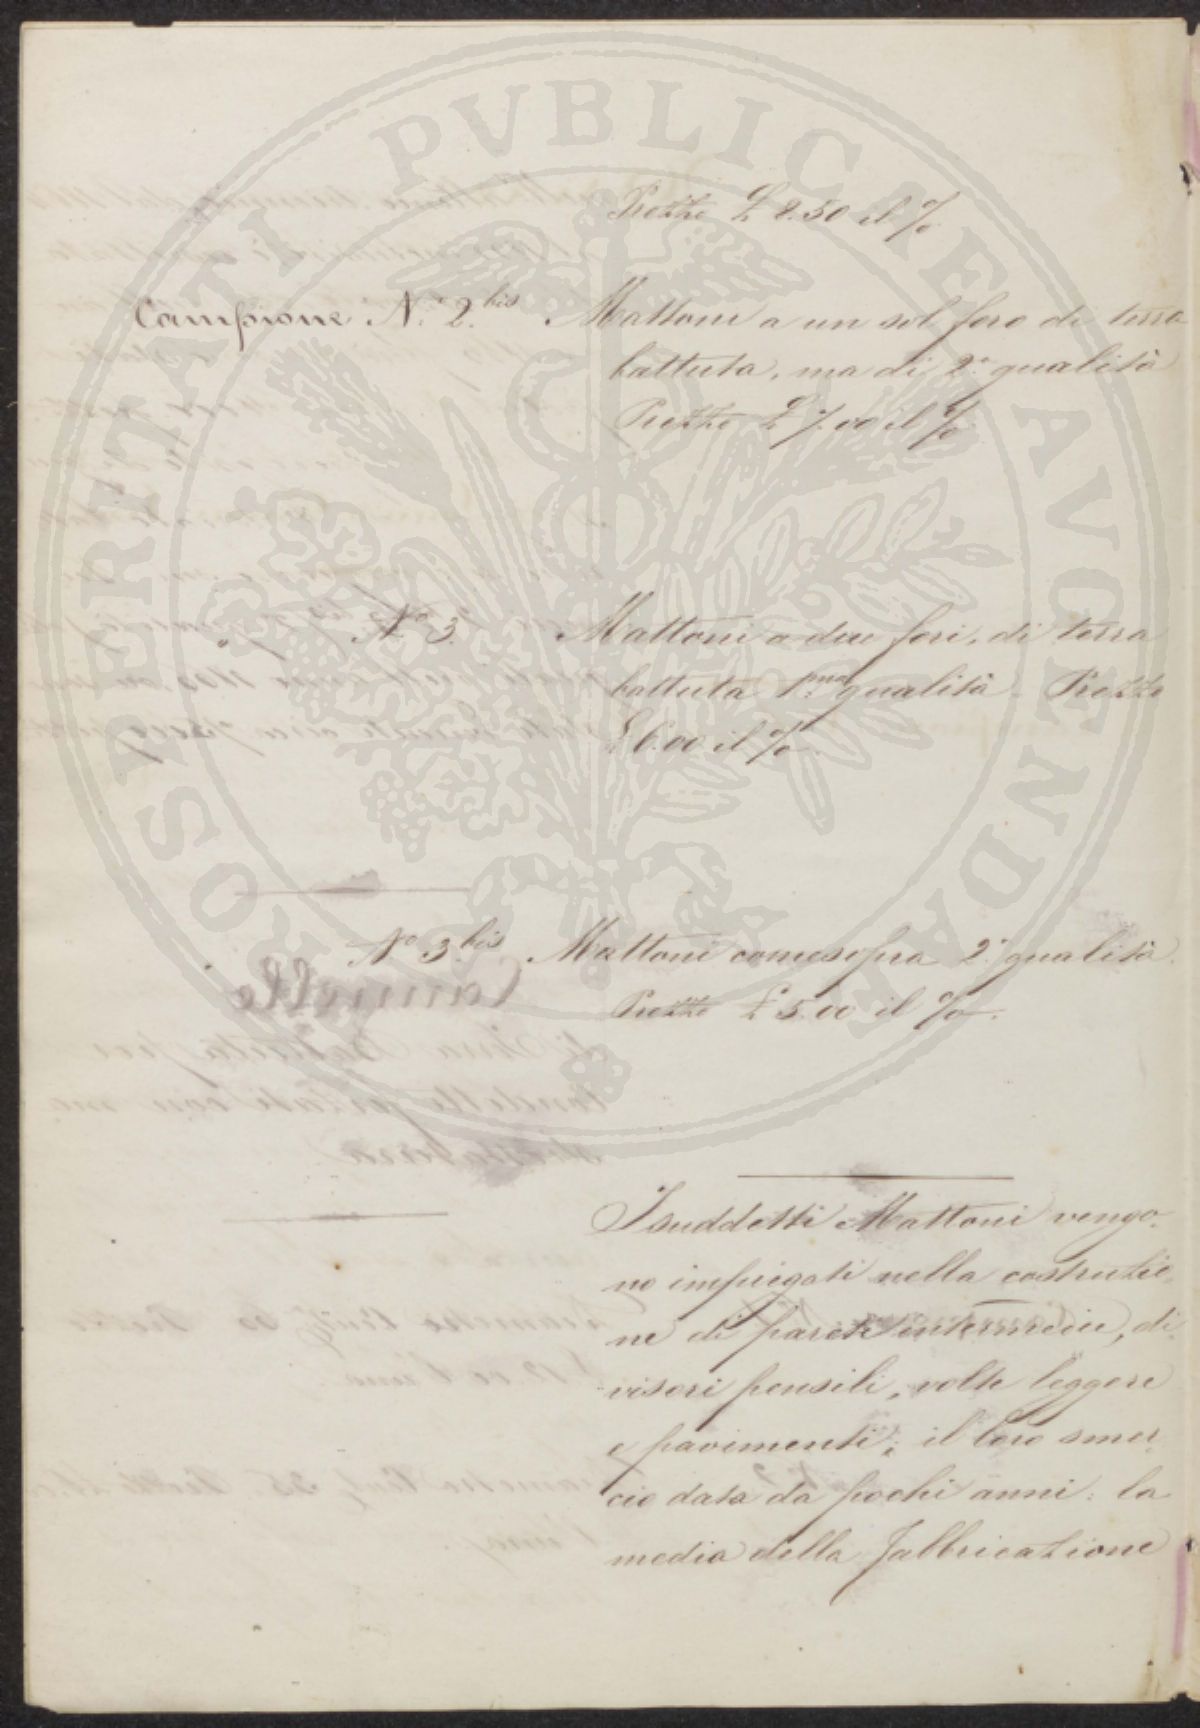 PROSPERITATI PVBLICAE AVGENDAE
Prezzo £ 8.50 il %
Campione N.° 2.bis Mattoni a un sol foro di terra
battuta, ma di 2.a qualità
Prezzo £ 7.00 il %
" N.° 3. Mattoni a due fori, di terra
battuta 1.ma qualità - Prezzo
£ 6.00 il %.
" N.° 3.bis Mattoni comesopra 2.a qualità.
Prezzo £ 5.00 il %.
I suddetti Mattoni vengo-
no impiegati nella costruzio-
ne di pareti intermedie, di-
visori pensili, volte leggere
e pavimenti; il loro smer-
cio data da pochi anni: la
media della Fabbricazione